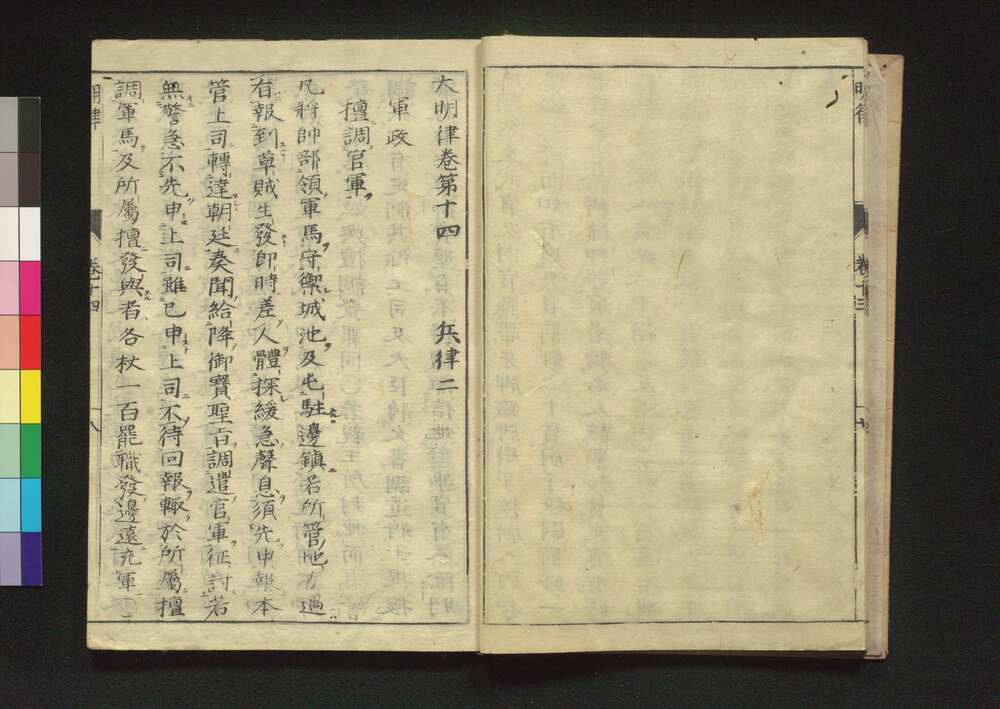 明律
卷十三
大明律卷第十四 兵律二
軍政
擅調官軍
凡將帥部領軍馬守禦城池及屯駐邊鎮若所管地方遇
有報到草賊生發即時差人體探緩急聲息須先申報本
管上司轉達朝廷奏聞給降御寶聖旨調遣官軍征討若
無警急不先申上司雖已申上司不待回報輙於所屬擅
調軍馬及所屬擅發與者各杖一百罷職發邊遠充軍
明律
卷十四
八